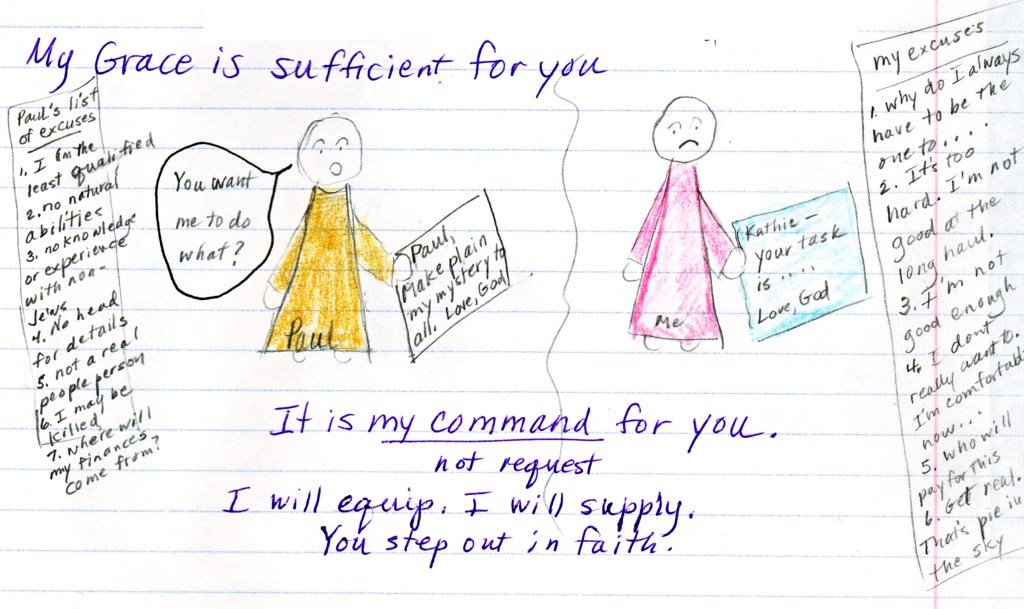 My Grace is sufficient for you
Paul's list
of excuses
1. I am the
least qualified
2. no natural
abilities
3. no knowledge
or experience
with non-
Jews
4. No head
for details
5. not a real
people person
6. I may be
killed
7. Where will
my finances
come from?
You want
me to do
what?
Paul,
Make plain
my mystery to
all. Love, God
Paul
Kathie -
your task
is .....
Love, God
Me
my excuses
1. why do I always
have to be the
one to....
2. It's too
hard. I'm not
good at the
long haul.
3. I'm not
good enough
4. I dont
really want to.
I'm comfortable
now...
5. who will
pay for this
6. Get real.
That's pie in
the sky
It is my command for you.
not request
I will equip. I will supply.
You step out in faith.